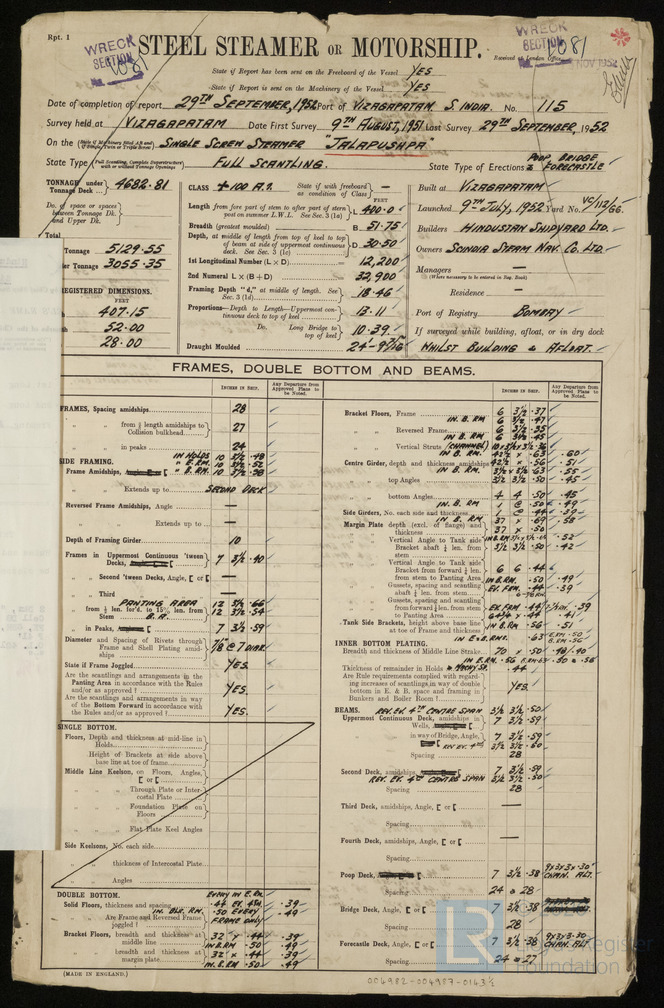 Rpt. 1
WRECK SECTION
1081
STEEL STEAMER OR MOTORSHIP.
WRECK SECTION
1081
Received at London Office
NOV 1952
State if Report has been sent on the Freeboard of the Vessel YES
State if Report is sent on the Machinery of the Vessel YES
Date of completion of report 29TH SEPTEMBER, 1952 Port of VIZAGAPATAM S. INDIA. No. 115
Survey held at VIZAGAPATAM Date First Survey 9TH AUGUST, 1951 Last Survey 29TH SEPTEMBER, 1952
On the SINGLE SCREW STEAMER "JALAPUSHPA"
State Type (Full Scantling, Complete Superstructure with or without Tonnage Openings) FULL SCANTLING. State Type of Erections POOP BRIDGE & FORECASTLE
TONNAGE under Tonnage Deck 4682.81
Do. of space or spaces between Tonnage Dk. and Upper Dk.
Total
Tonnage 5129.55
Tonnage 3055.35
REGISTERED DIMENSIONS.
FEET
407.15
52.00
28.00
CLASS + 100 A.1. State if with freeboard as condition of Class —
FEET
Length from fore part of stem to after part of stern post on summer L.W.L. See Sec. 3 (1a) L 400.0
Breadth (greatest moulded) B 51.75
Depth, at middle of length from top of keel to top of beam at side of uppermost continuous deck. See Sec. 3 (1c) D 30.50
1st Longitudinal Number (L × D) 12,200
2nd Numeral L × (B + D) 32,900
Framing Depth "d," at middle of length. See Sec. 3 (1d) 18.46
Proportions—Depth to Length—Uppermost continuous deck to top of keel 13.11
Do. Long Bridge to top of keel 10.39
Draught Moulded
Built at VIZAGAPATAM
Launched 9TH JULY, 1952 Yard No. VC/112/66.
Builders HINDUSTAN SHIPYARD LTD.
Owners SCINDIA STEAM NAV. CO. LTD.
Managers —
(Where necessary to be entered in Reg. Book)
Residence —
Port of Registry BOMBAY
If surveyed while building, afloat, or in dry dock
WHILST BUILDING & AFLOAT.
FRAMES, DOUBLE BOTTOM AND BEAMS.
INCHES IN SHIP.
Any Departure from Approved Plans to be Noted.
FRAMES, Spacing amidships 28
" " from 1/5 length amidships to Collision bulkhead 27
" " in peaks 24
SIDE FRAMING.
IN HOLDS 10 3½ .48
" E.RM. 10 3½ .52
Frame Amidships, " B.RM. 10 3½ .58
Extends up to SECOND DECK
Reversed Frame Amidships, Angle —
" " Extends up to —
Depth of Framing Girder 10
Frames in Uppermost Continuous 'tween Decks, 7 3½ .40
" Second 'tween Decks, Angle, [ or [ —
" Third " " " —
PANTING AREA 12 3½ .66
" from ⅕ len. for'd. to 15% len. from Stem B.A. 12 3½ .54
" in Peaks, 7 3½ .59
Diameter and Spacing of Rivets through Frame and Shell Plating amidships 7/8 @ 7 DIAR.
State if Frame Joggled YES.
Are the scantlings and arrangements in the Panting Area in accordance with the Rules and/or as approved? YES.
Are the scantlings and arrangements in way of the Bottom Forward in accordance with the Rules and/or as approved? YES.
SINGLE BOTTOM.
Floors, Depth and thickness at mid-line in Holds
" Height of Brackets at side above base line at toe of frame
Middle Line Keelson, on Floors, Angles, [ or [
" " Through Plate or Intercostal Plate
" " Foundation Plate on Floors
" " Flat Plate Keel Angles
Side Keelsons, No. each side
" " thickness of Intercostal Plate
" " Angles
DOUBLE BOTTOM.
Solid Floors, thickness and spacing
EVERY IN E.RM.
.39
IN BLR. RM. .50 EVERY .49
" Are Frame and Reversed Frame joggled? FRAME ONLY
Bracket Floors, breadth and thickness at middle line 32 × .44 .39
IN B.RM .50 .49
" breadth and thickness at margin plate 32 × .44 .39
IN B.RM .50 .49
(MADE IN ENGLAND.)
INCHES IN SHIP.
Any Departure from Approved Plans to be Noted.
Bracket Floors, Frame 6 3½ .37
IN B. RM 6 3½ .47
" " Reversed Frame 6 3½ .35
IN B. RM 6 3½ .45
" " Vertical Struts (CHANNEL)
Centre Girder, depth and thickness amidships 42½ × .56 .51
" " top Angles 3½ 3½ .50 .45
" " bottom Angles 4 4 .50 .45
Side Girders, No. each side and thickness 1 @ .44 .39
Margin Plate depth (excl. of flange) and thickness 37 × .50
IN B. RM 37 × .69 .58
" Vertical Angle to Tank side Bracket abaft ¼ len. from stem 3½ 3½ .50 .42
" Vertical Angle to Tank side Bracket from forward ¼ len. from stem to Panting Area 6 6 .44
" Gussets, spacing and scantling abaft ¼ len. from stem
" Gussets, spacing and scantling from forward ¼ len. from stem to Panting Area
Tank Side Brackets, height above base line at toe of Frame and thickness
INNER BOTTOM PLATING.
Breadth and thickness of Middle Line Strake 70 × .50
Thickness of remainder in Holds .44
Are Rule requirements complied with regarding increases of scantlings, in way of double bottom in E. & B. space and framing in Bunkers and Boiler Room? YES.
BEAMS. REV. EV. 4TH CENTRE SPAN 3½ 3½ .50
Uppermost Continuous Deck, amidships in Wells, 7 3½ .59
" " in way of Bridge, Angle, 7 3½ .59
REV EV. 4TH 3½ 3½ .50
Spacing 28
Second Deck, amidships, 7 3½ .59
REV. EV. 4TH CENTRE SPAN 3½ 3½ .50
Spacing 28
Third Deck, amidships, Angle, [ or [ —
Spacing
Fourth Deck, amidships, Angle, [ or [
Spacing
Poop Deck, 7 3½ .38 9×3×3×.30 CHAN. ALT.
Spacing 24 & 28
Bridge Deck, Angle, [ or [ 7 3½ .38
Spacing 28
Forecastle Deck, Angle, [ or [ 7 3½ .38 CHAN. ALT
Spacing 24 & 27
LR
Lloyd's Register Foundation
004982-004987-0163½